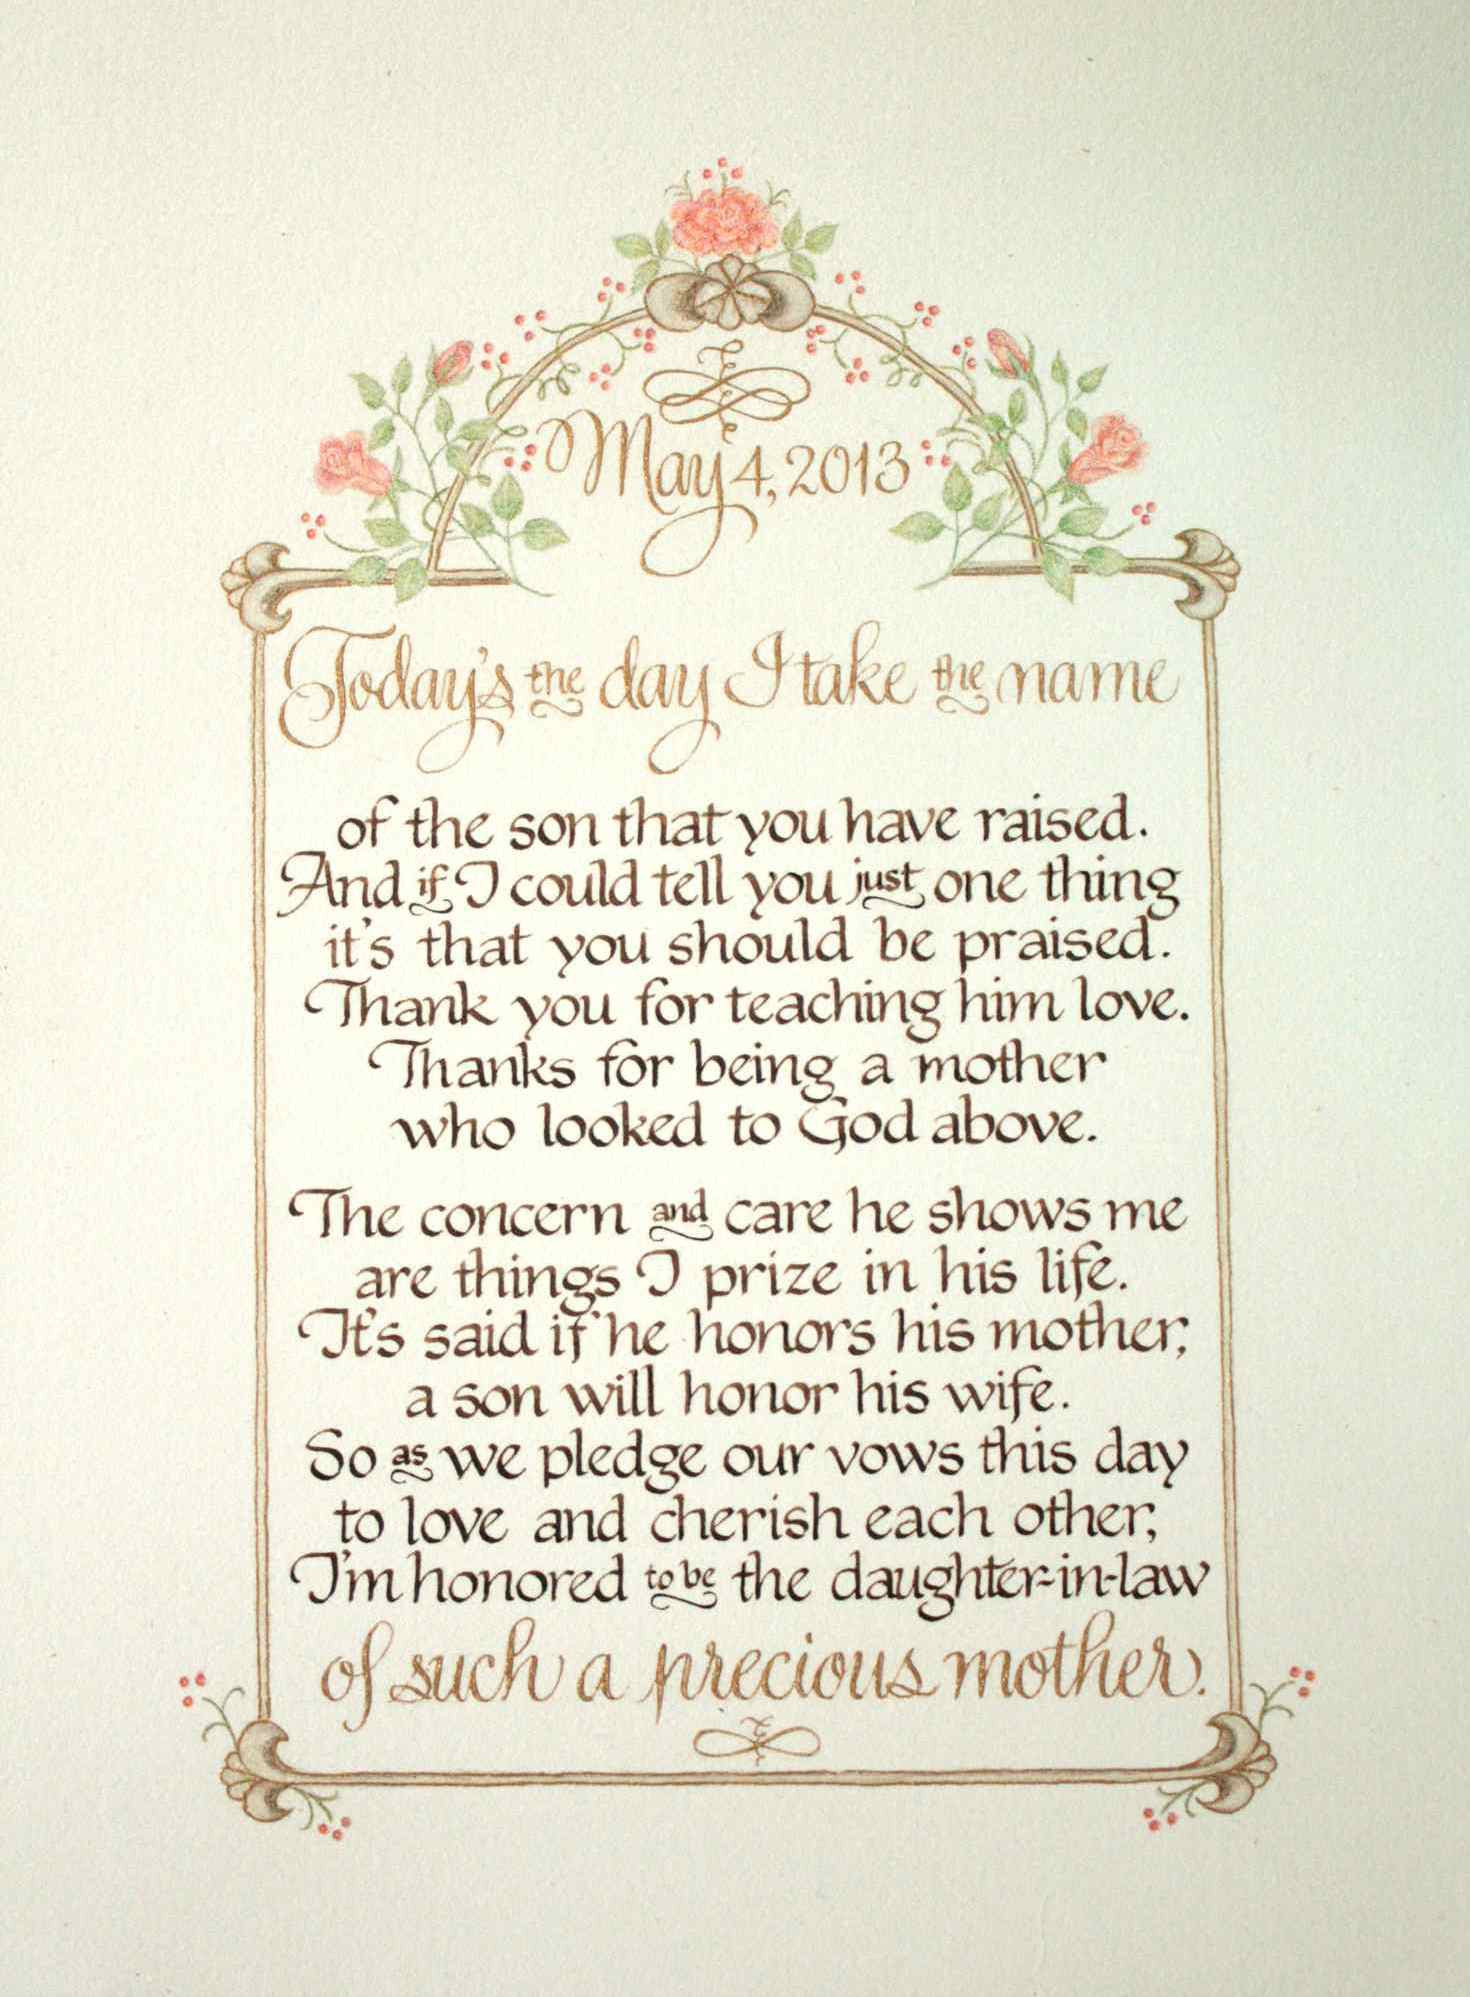 May 4, 2013
Today's the day I take the name
of the son that you have raised.
And if I could tell you just one thing
it's that you should be praised.
Thank you for teaching him love.
Thanks for being a mother
who looked to God above.
The concern and care he shows me
are things I prize in his life.
It's said if he honors his mother,
a son will honor his wife.
So as we pledge our vows this day
to love and cherish each other,
I'm honored to be the daughter-in-law
of such a precious mother.